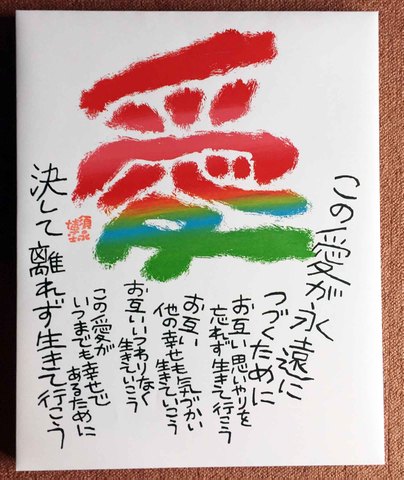 愛
この愛が永遠に
つづくために
お互い思いやりを
忘れず生きて行こう
お互い
他の幸せも気づかい
生きていこう
お互いいつわりなく
生きていこう
この愛が
いつまでも幸せで
あるために
決して離れず生きて行こう